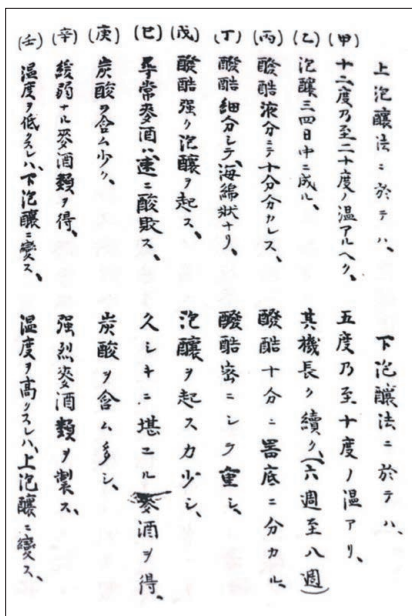 上泡釀法ニ於テハ、 下泡釀法ニ於テハ、
(甲) 十二度乃至二十度ノ温アルヘク、 五度乃至十度ノ温アリ、
(乙) 泡釀三四日中ニ成ル、 其機長ク續ク(六週至八週)
(丙) 醱酷液分ニテ十分分カレス、 醱酷十分ニ器底ニ分カル、
(丁) 醱酷細分シテ海綿状ナリ、 醱酷密ニシテ重シ、
(戊) 醱酷强ク泡釀ヲ起ス、 泡釀ヲ起スカ少シ、
(巳) 尋常麥酒ハ速ニ酸敗ス、 久シキニ堪エル麥酒ヲ得、
(庚) 炭酸ヲ含ム少ク、 炭酸ヲ含ム多シ、
(辛) 緩弱ナル麥酒類ヲ得、 强烈麥酒類ヲ製ス、
(壬) 温度ヲ低クスレハ、下泡釀ニ變ス、 温度ヲ高クスレハ、上泡釀ニ變ス、